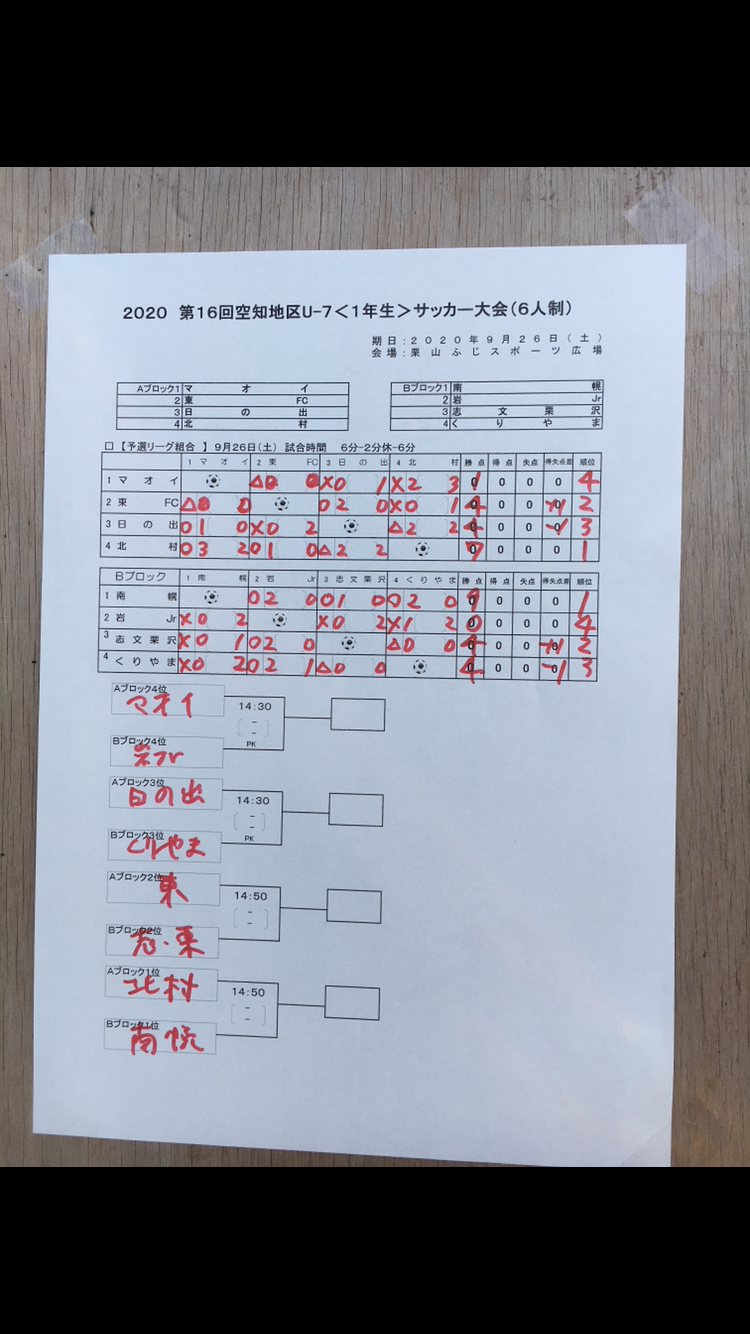 2020 第16回空知地区U-7<1年生>サッカー大会(6人制)
期日:2020年9月26日(土)
会場:栗山ふじスポーツ広場
Aブロック1 マオイ
2 東FC
3 日の出
4 北村
Bブロック1 南幌
2 岩Jr
3 志文栗沢
4 くりやま
□【予選リーグ組合 】9月26日(土) 試合時間 6分-2分休-6分
1 マオイ 2 東FC 3 日の出 4 北村 勝点 得点 失点 得失点差 順位
1 マオイ △0 0 ×0 1 ×2 3 1 0 0 0 4
2 東FC △0 0 ○2 0 ×0 1 4 0 0 +1 2
3 日の出 ○1 0 ×0 2 △2 2 4 0 0 -1 3
4 北村 ○3 2 ○1 0 △2 2 7 0 0 0 1
Bブロック 1 南幌 2 岩Jr 3 志文栗沢 4 くりやま 勝点 得点 失点 得失点差 順位
1 南幌 ○2 0 ○1 0 ○2 0 9 0 0 0 1
2 岩Jr ×0 2 ×0 2 ×1 2 0 0 0 0 4
3 志文栗沢 ×0 1 ○2 0 △0 0 4 0 0 +1 2
4 くりやま ×0 2 ○2 1 △0 0 4 0 0 -1 3
Aブロック4位
マオイ
14:30
PK
Bブロック4位
岩Jr
Aブロック3位
日の出
14:30
PK
Bブロック3位
くりやま
Aブロック2位
東
14:50
Bブロック2位
志・栗
Aブロック1位
北村
14:50
Bブロック1位
南幌